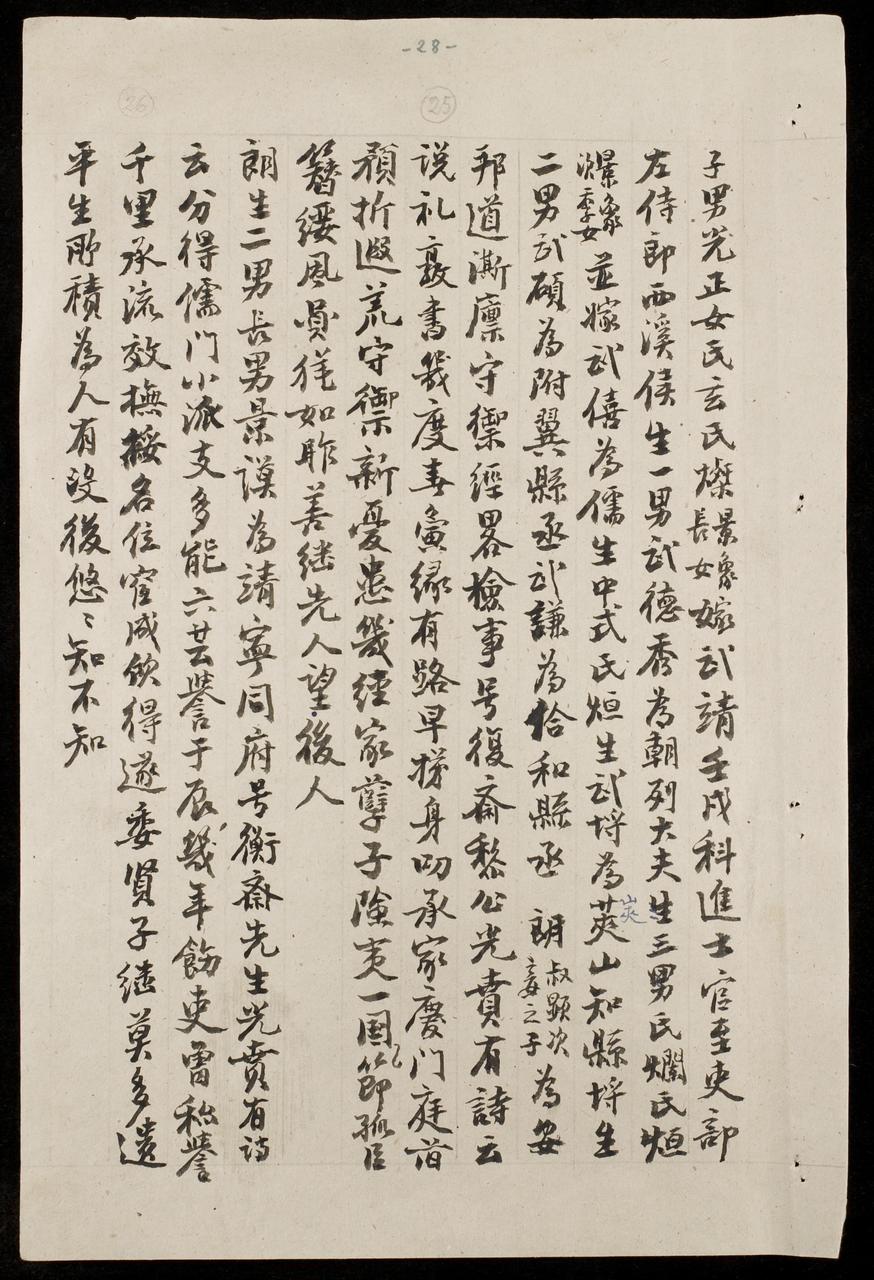 -28-
25
26
子男光正女氏玄氏燦景象長女嫁武靖壬戌科進士官至吏部
左侍郎西溪侯生一男武德秀為朝列大夫生三男氏爛氏烜
景象季女並嫁武僖為儒生中式氏烜生武埒為莢山知縣埒生
二男武碩為附翼縣丞武謙為給和縣丞 朗叔顯次妾之子為安
邦道漸廪守禦經畧檢事号復齋黎公光賁有詩云
說礼敦書幾度春夤縁有路早揚身叨承家慶門庭
頹折遐荒守禦新憂患幾經家孽子險夷一國節孤臣
簪纓風㒵如昨善继先人望後人
朗生二男長男景謨為靖寧同府号衡齋先生光賁有詩
云分得儒門小派支多能六芸譽于辰幾年飭吏曾秘譽
千里承流效撫綏名位官成飲得遂委賢子継莫多遺
平生所積為人有没後悠〻知不知